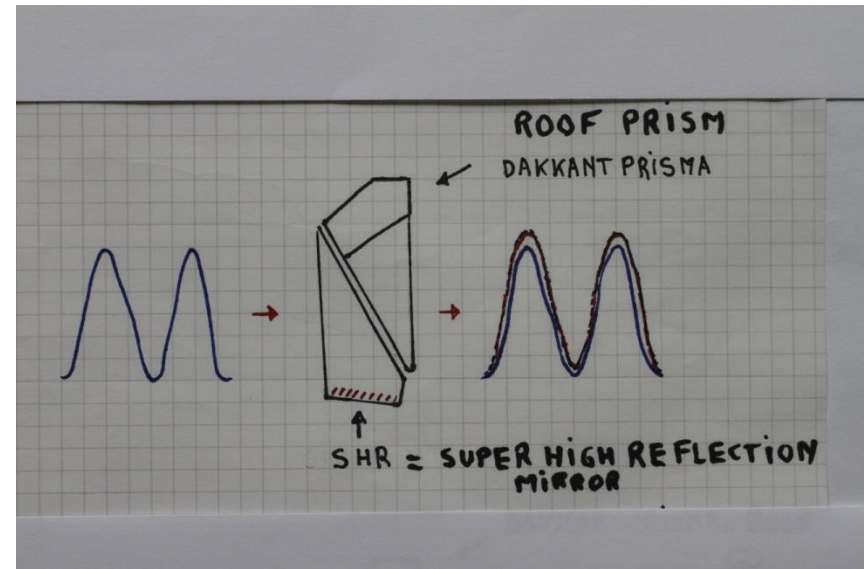 ROOF PRISM
DAKKANT PRISMA
SHR = SUPER HIGH REFLECTION
MIRROR